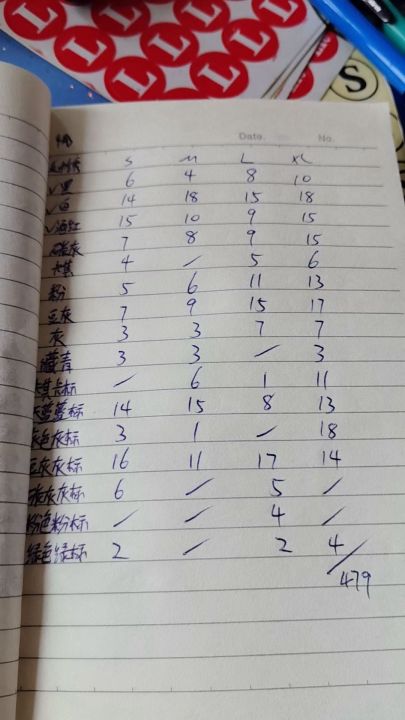 L L L L
S
Date. No.
S M L XL
√黑 6 4 8 10
√白 14 18 15 18
√酒红 15 10 9 15
灰 7 8 9 15
卡其 4 / 5 6
粉 5 6 11 13
豆灰 7 9 15 17
灰 3 3 7 7
藏青 3 3 / 3
卡标 / 6 1 11
标 14 15 8 13
灰色灰标 3 1 / 18
豆灰灰标 16 11 17 14
灰灰标 6 / 5 /
粉色粉标 / / 4 /
绿色绿标 2 / 2 4
/479